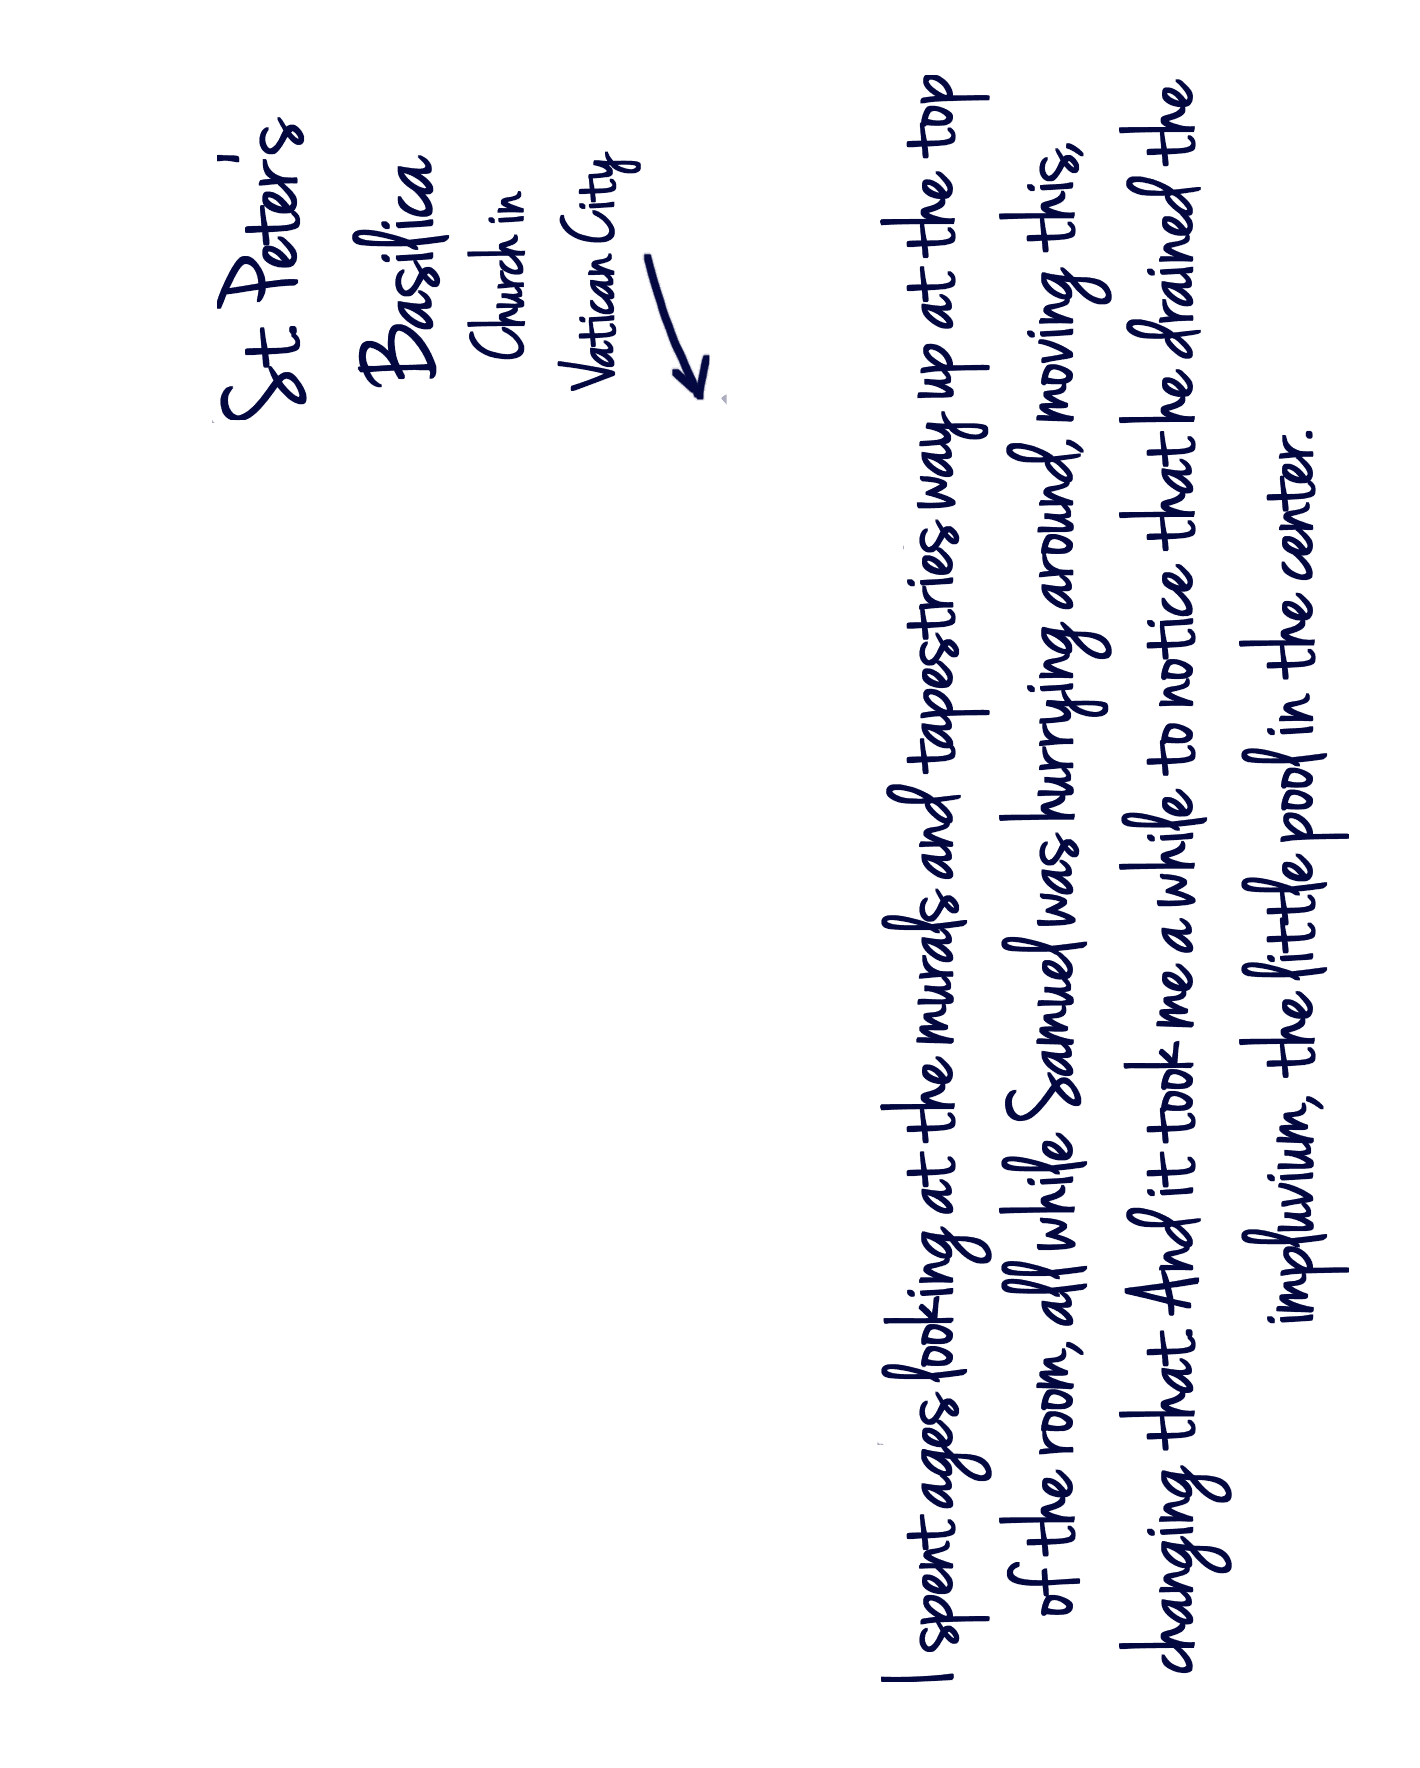 St Peter's
Basilica
Church in
Vatican City
I spent ages looking at the murals and tapestries way up at the top
of the room, all while Samuel was hurrying around, moving this,
changing that. And it took me a while to notice that he drained the
impluvium, the little pool in the center.